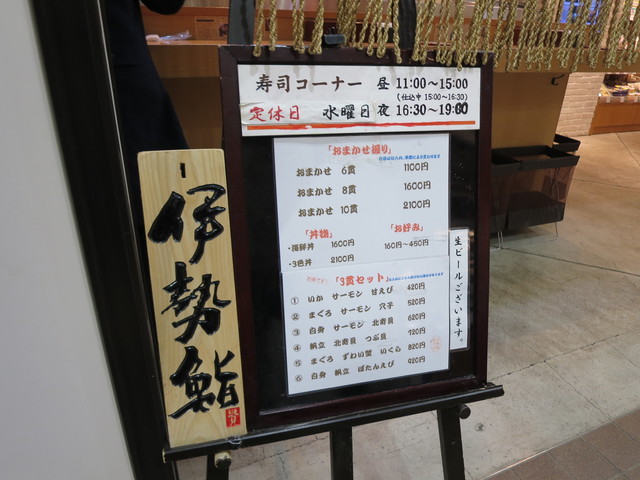 寿司コーナー 昼 11:00～15:00
(仕込中 15:00～16:30)
定休日 水曜日 夜 16:30～19:00
「おまかせ握り」
おまかせ 6貫 1100円
おまかせ 8貫 1600円
おまかせ 10貫 2100円
「丼物」
・海鮮丼 1600円
・3色丼 2100円
「お好み」
160円～450円
「3貫セット」
① いか サーモン 甘えび 420円
② まぐろ サーモン 穴子 520円
③ 白身 サーモン 北寄貝 620円
④ 帆立 北寄貝 つぶ貝 720円
⑤ まぐろ ずわい蟹 いくら 820円
⑥ 白身 帆立 ぼたんえび 920円
生ビールございます。
伊勢鮨